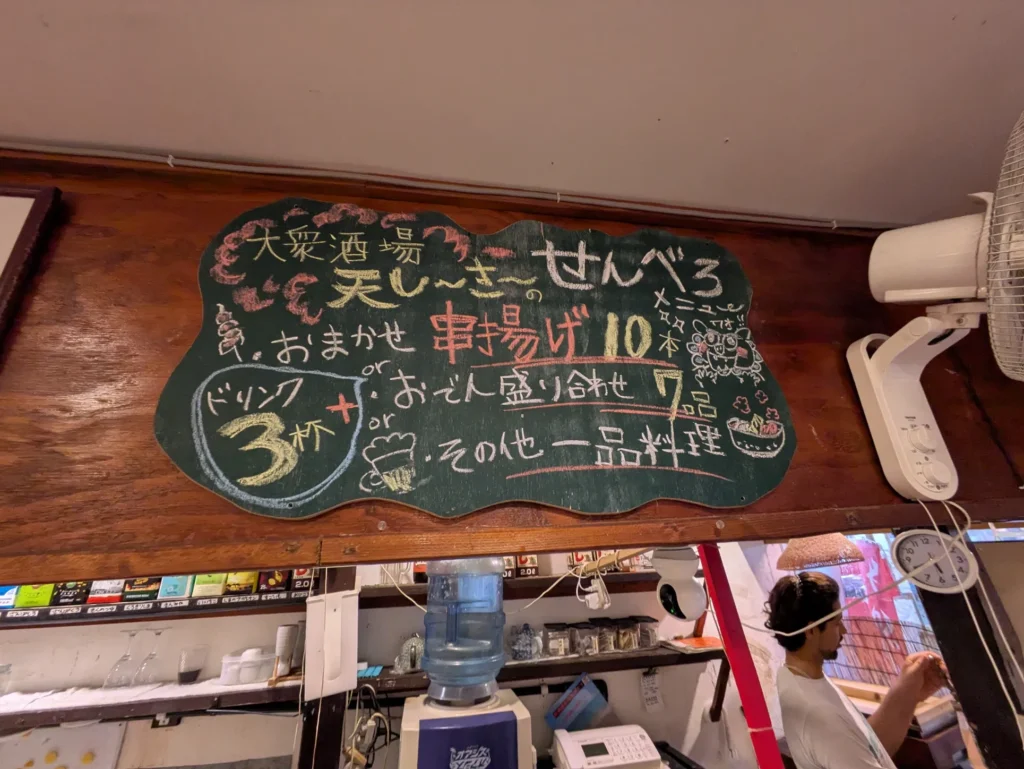 大衆酒場
天し〜さ〜の せんべろ
メニュー
・おまかせ 串揚げ 10本
or
ドリンク 3杯 +
・おでん 盛り合わせ 7品
or
・その他 一品料理
オアシス